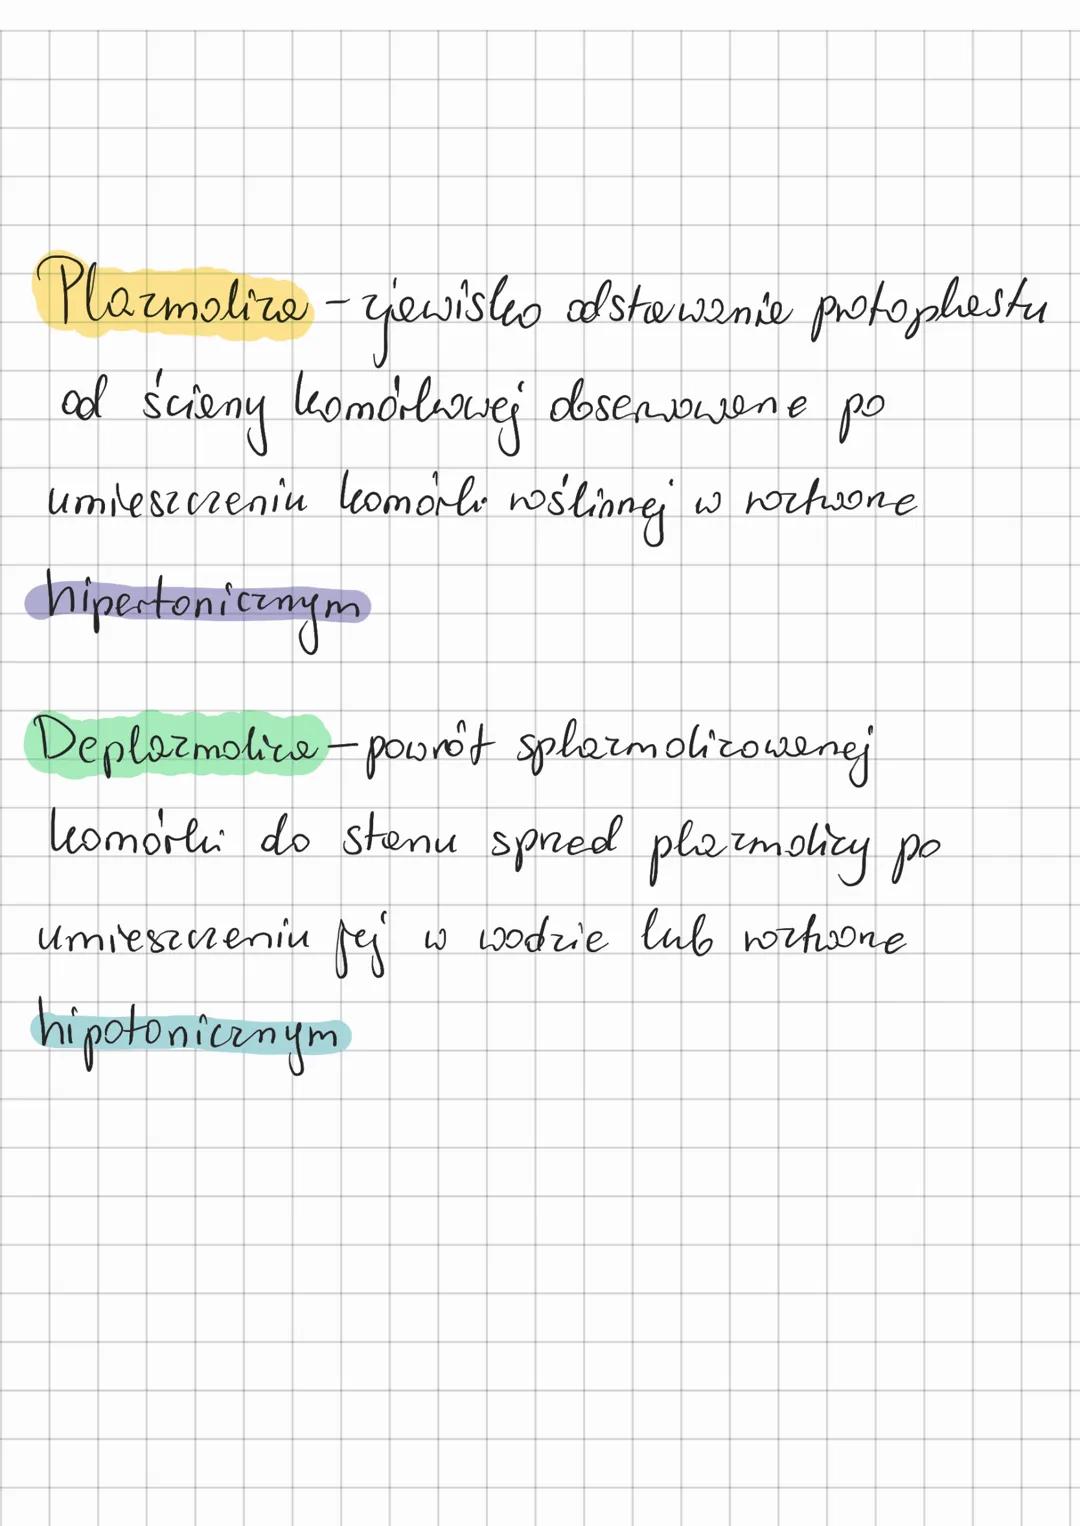 Plazmoliza - zjawisko odstawania protoplastu
od ścieny komórkowej obserwowane po
umieszczeniu komórki roślinnej w roztworze
hipertonicznym
Deplazmoliza - powrót splazmolizowanej
komórki do stanu sprzed plazmolizy po
umieszczeniu jej w wodzie lub roztworze
hipotonicznym